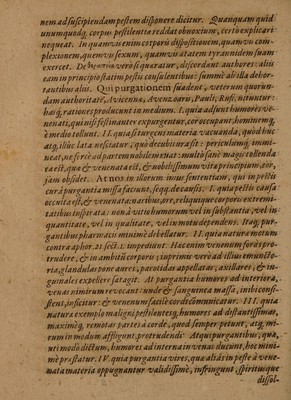 nem ad suscipiendam pestem disponere dicitur. Quanquam quid
unumquodq, corpus pestilentiæ reddat obnoxium, certò explicari
nequeat. In quamvis enim corporis dispositionem, quamvis com-
plexionem, quemvis sexum, quamvis ætatem tyrannidem suam
exercet. De purgatione verò si quæratur, discordant authores: aliis
eam in principio statim pestis consulentibus: summè ab illa dehor-
tantibus aliis. Qui purgationem suadent, veterum quorun-
dam authoritate, Avicennæ, Avenzoaris, Pauli, Ruffi, nituntur:
hasq, rationes producunt in medium. I. quia adsunt humores ve-
nenati, qui nisi festinanter expurgentur, cor occupant, hominemq,
è medio tollunt. II. quia si turgens materia vacuanda, quòd huc
atq, illuc lata nesciatur, quò decubitura sit: periculumq, immi-
neat, ne fortè ad partem nobilem eat: multò sanè magis tollenda
ea est, quæ & venenata est, & nobilissimum vitæ principium, cor,
jam obsidet. At nos in aliorum imus sententiam, qui in pestis
cura purgantia missa faciunt, seqq. de causis. I. quia pestis causa
occulta est, & venenata: naribus, ore, reliquique corporis extremi-
tatibus inspirata: non à vitio humorum vel in substantia, vel in
quantitate, vel in qualitate, vel in motu dependens. Ergo, pur-
gantibus pharmacis minimè debellatur. II. quia naturæ motum
contra aphor. 21. sect. 1. impediunt. Hæc enim venenum foras pro-
trudere, & in ambitu corporis; inprimis verò ad illius emuncto-
ria, glandulas pone aures, parotidas appellatas, axillares, & in-
guinales expellere satagit. At purgantia humores ad interiora,
venas nimirum revocant: unde & sanguineæ massæ, imbi confi-
stent, inficitur: & venenum facilè cordi communicatur. III. quia
natura exemplo maligni pestilentesq, humores ad distantissimas,
maximéq, remotas partes à corde, quod semper petunt, atq, mi-
rum in modum affligunt, protrudendi. Atqui purgantibus, qua-
uti modò dictum, humores ad interna in venas ducunt, hoc mini-
mè præstatur. IV. quia purgantia vires, quæ aliàs in peste à vene-
nata materia oppugnantur validissimè, infringunt, spiritusque
dissol-